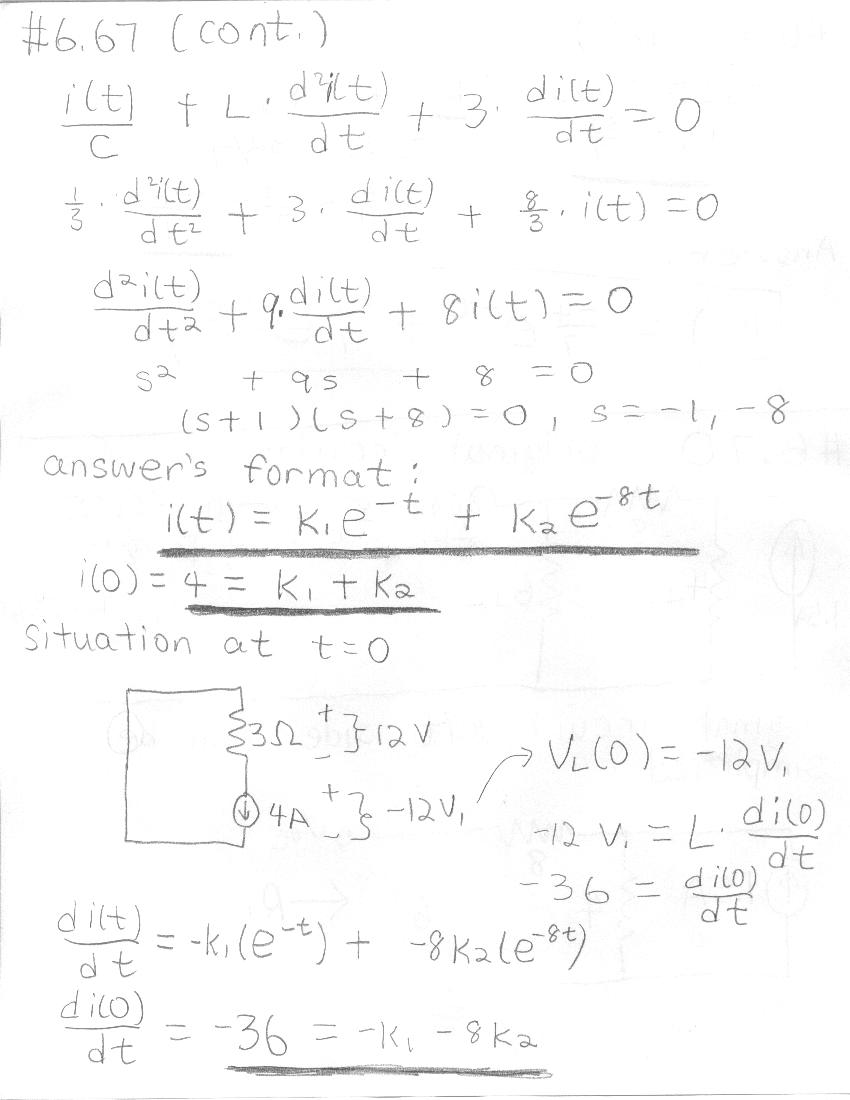 #6.67 (cont.)
i(t)/C + L · d²i(t)/dt + 3 · di(t)/dt = 0
1/3 · d²i(t)/dt² + 3 · di(t)/dt + 8/3 · i(t) = 0
d²i(t)/dt² + 9 · di(t)/dt + 8i(t) = 0
s² + 9s + 8 = 0
(s+1)(s+8) = 0, s = -1, -8
answer's format:
i(t) = K₁e^-t + K₂e^-8t
i(0) = 4 = K₁ + K₂
situation at t=0
3Ω + - } 12 V
4A + - } -12V,
V_L(0) = -12V,
-12 V, = L · di(0)/dt
-36 = di(0)/dt
di(t)/dt = -K₁(e^-t) + -8K₂(e^-8t)
di(0)/dt = -36 = -K₁ - 8K₂